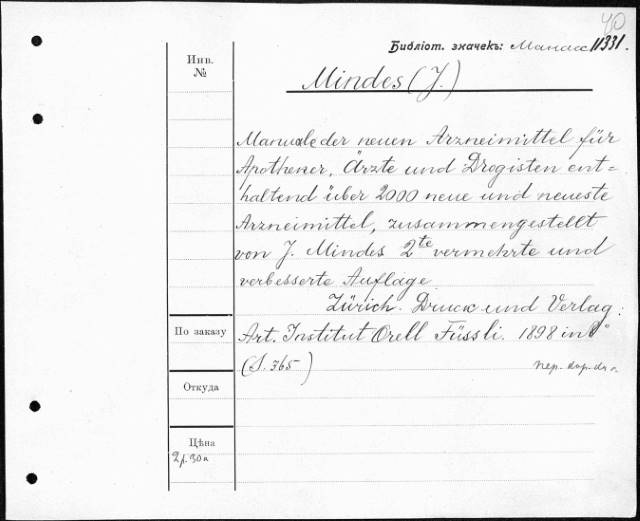 40
Библіот. значекъ: 11331.
Инв.
№
Mindes (J.)
Manuale der neuen Arzneimittel für
Apotheker, Ärzte und Drogisten ent=
haltend über 2000 neue und neueste
Arzneimittel, zusammengestellt
von J. Mindes 2te vermehrte und
verbesserte Auflage.
Zürich. Druck und Verlag:
По заказу
Art. Institut Orell Füssli. 1898 in
(S. 365)
пер.
Откуда
Цѣна
2р. 30к